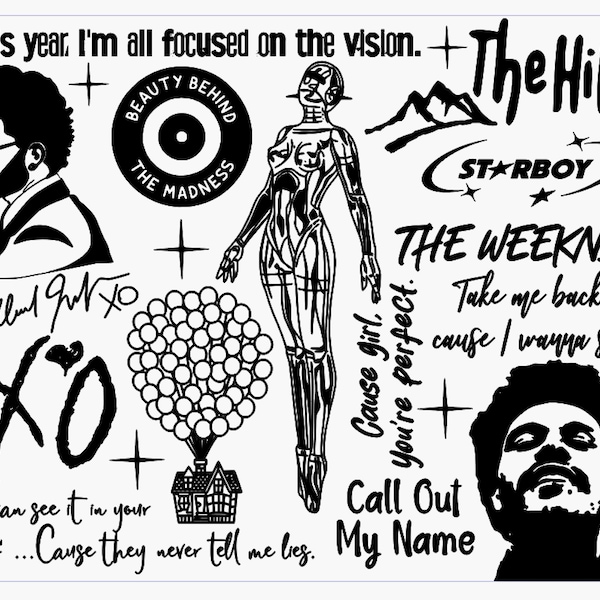 s year. I'm all focused on the vision.
BEAUTY BEHIND
THE MADNESS
The Hi
STARBOY
THE WEEKN
Take me back
cause I wanna s
Cause girl,
You're perfect.
XO
XO
an see it in your
...Cause they never tell me lies.
Call Out
My Name